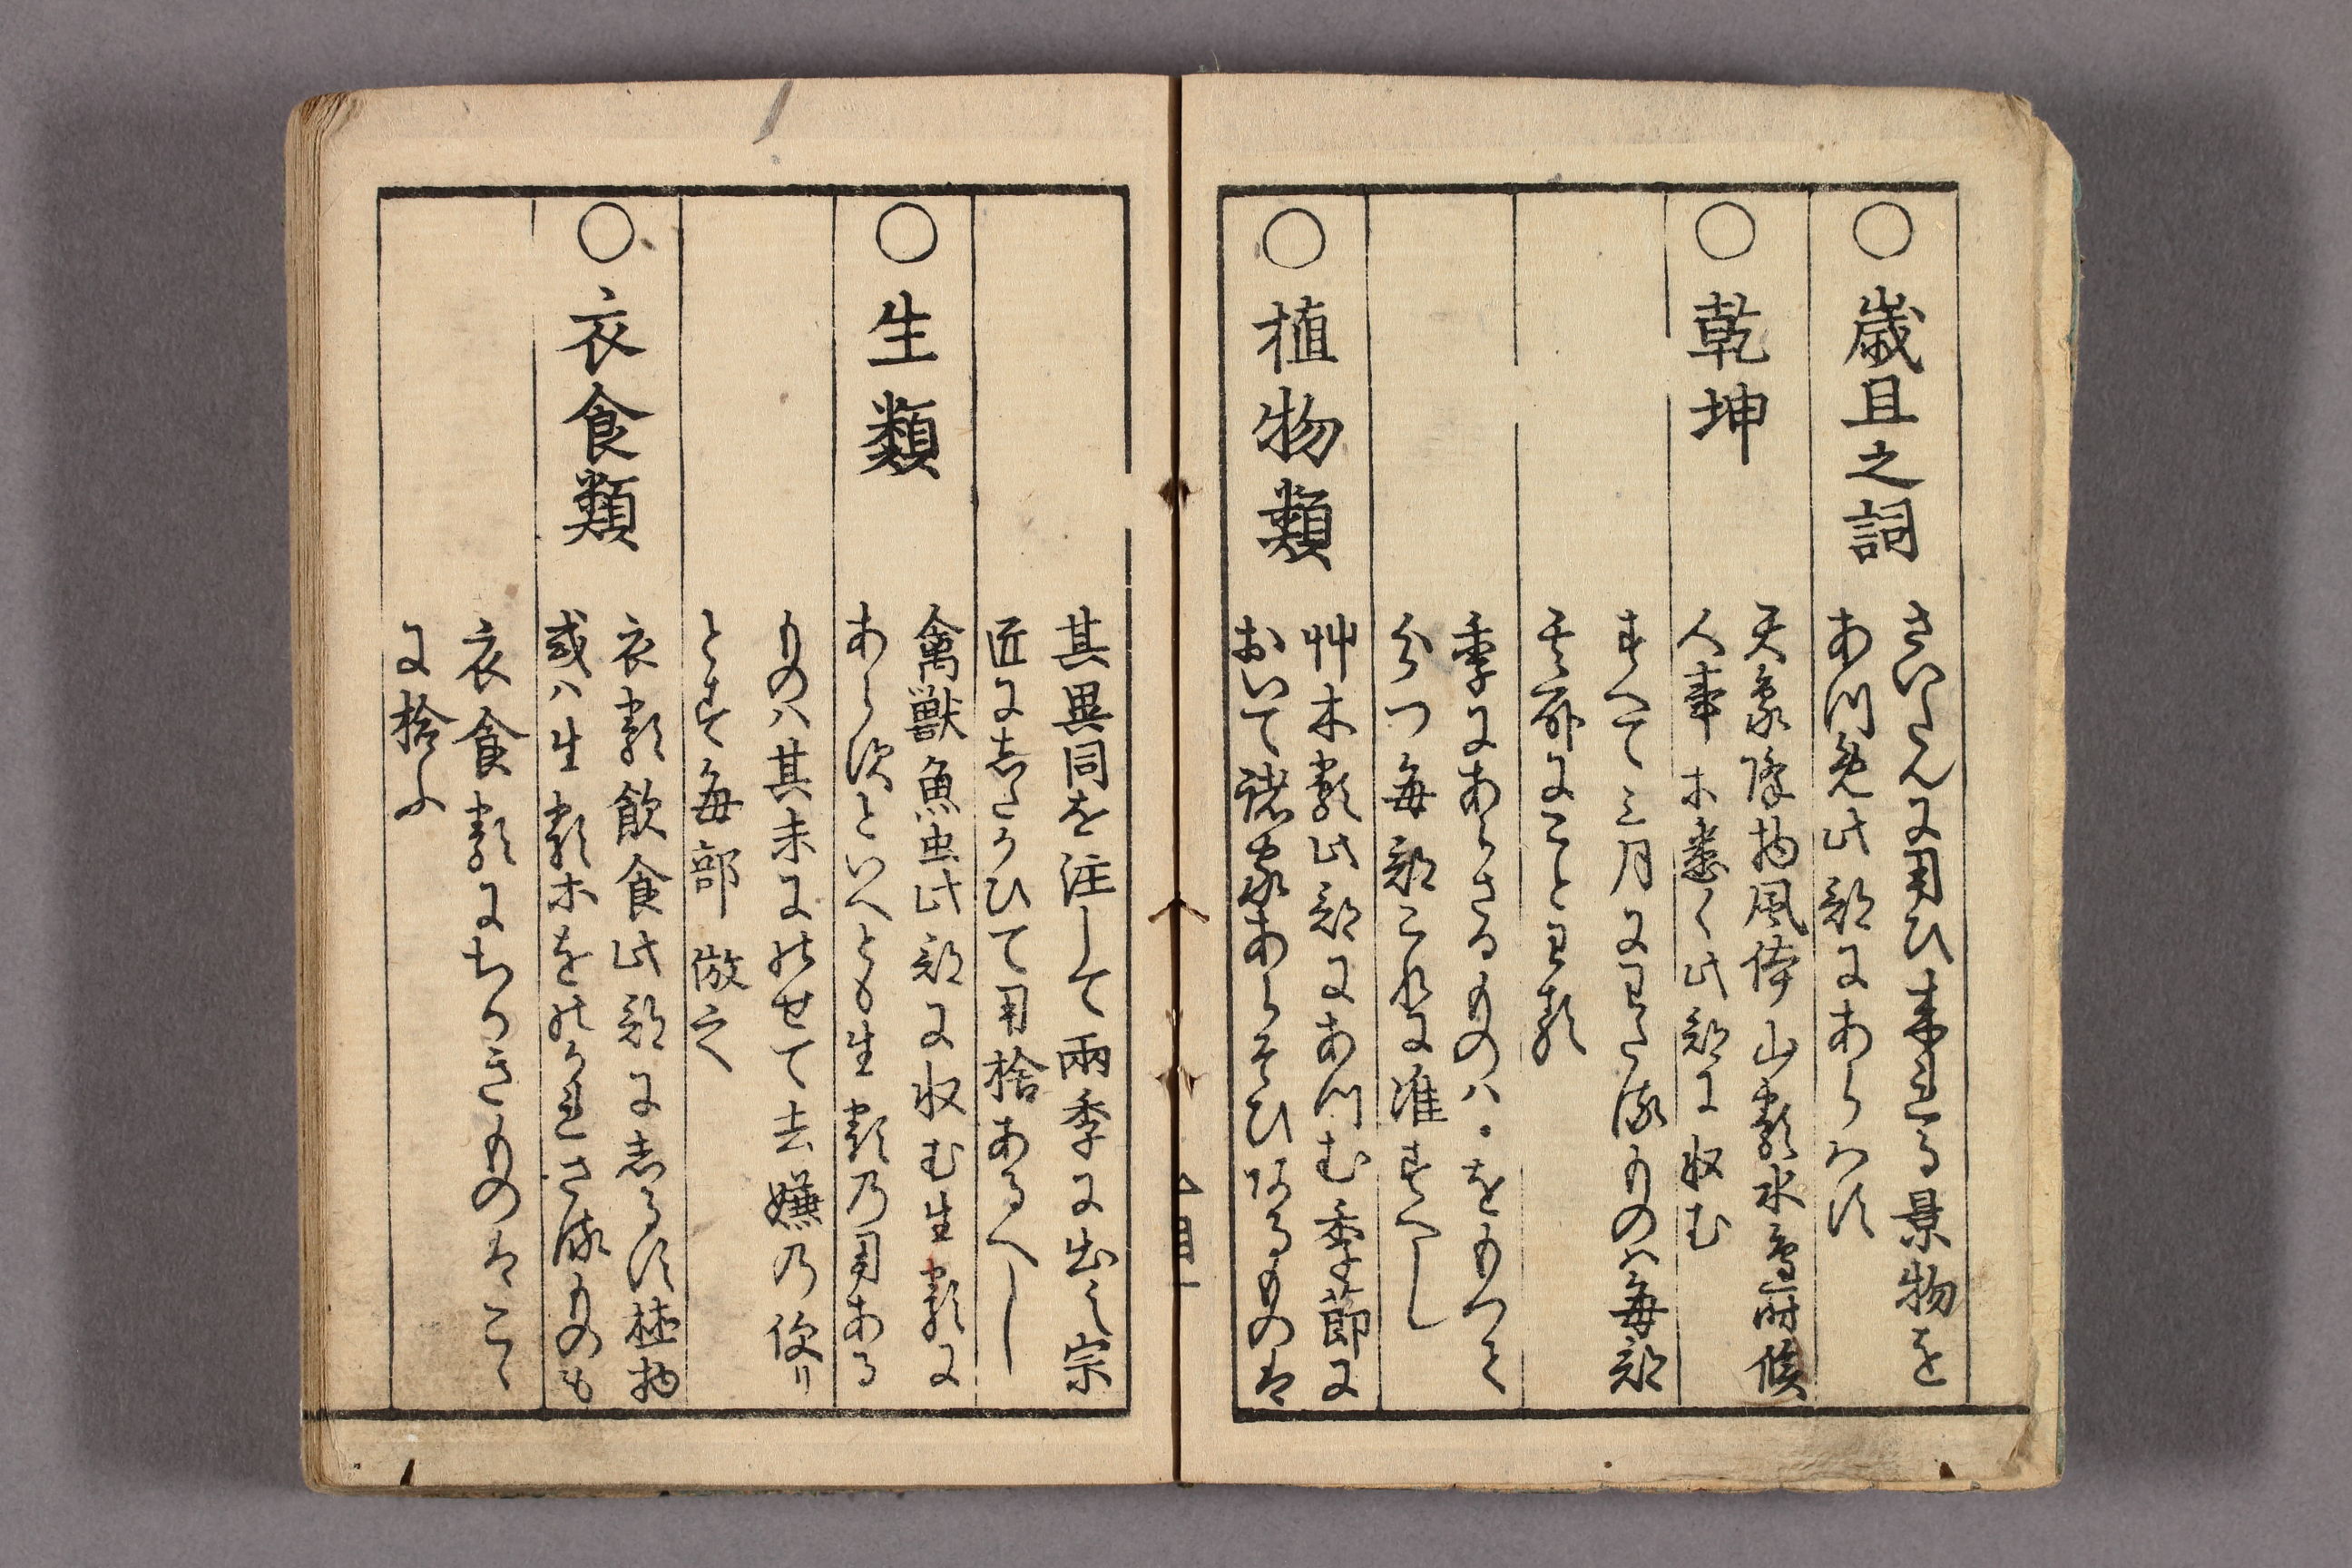 ○歳旦之詞
さいたんに用ひ来れる景物を
あつめ此部にあらはす
○乾坤
天象降物風体山類水辺時候
人事木悉く此部に収む
すへて三月にわたるものハ毎部
其部にことわる
季にあらさるものハ・をもつて
分つ毎部これに准すへし
○植物類
艸木類此部にあつむ季節に
おいて諸家あらそひあるものは
其異同を注して両季に出之宗
匠にしたかひて用捨あるへし
○生類
禽獣魚虫此部に収む生類に
あらすといへとも生類乃用ある
ものハ其末にのせて去嫌乃便リ
とす毎部倣之
○衣食類
衣類飲食此部にしるす植物
或ハ生類木をのかれさるものも
衣食類にちかきものはこゝ
に拾ふ